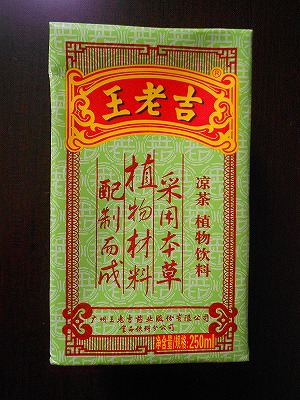 王老吉
®
凉茶 植物饮料
采用本草
植物材料
配制而成
广州王老吉药业股份有限公司
净含量/规格:250ml